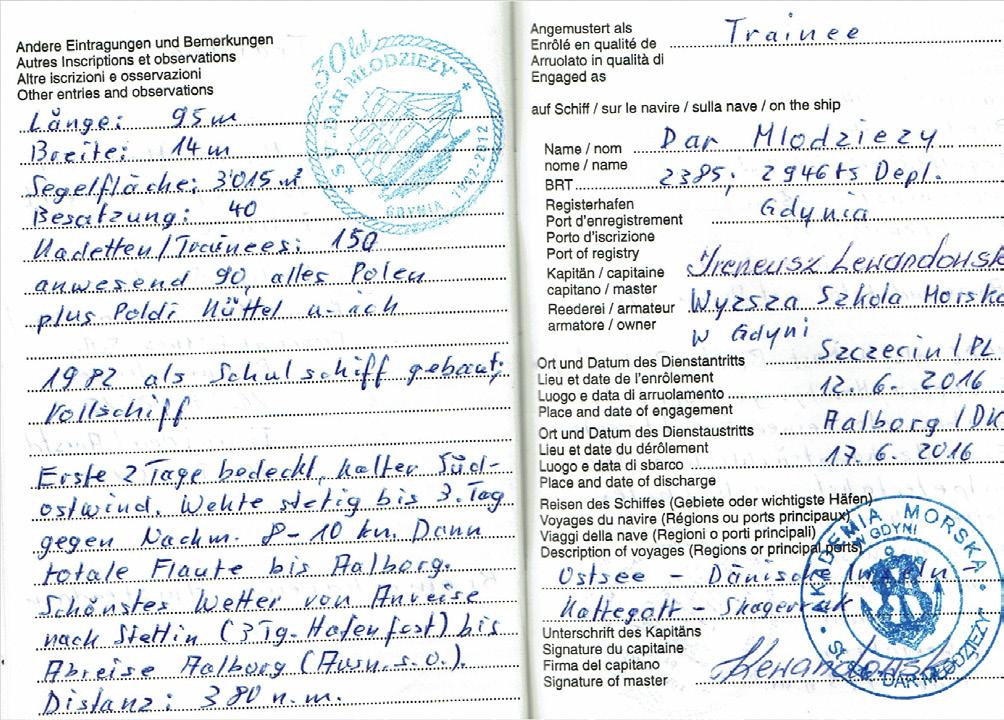 Andere Eintragungen und Bemerkungen
Autres Inscriptions et observations
Altre iscrizioni e osservazioni
Other entries and observations
30 lat
STS "DAR MŁODZIEŻY"
GDYNIA 1982-2012
Länge: 95 m
Breite: 14 m
Segelfläche: 3'015 m²
Besatzung: 40
Kadetten/Trainees: 150
anwesend 90, alles Polen
plus Poldi Hüttel u. ich
1982 als Schulschiff gebaut;
Vollschiff
Erste 2 Tage bedeckt, kalter Süd-
ostwind. Wehte stetig bis 3. Tag
gegen Nachm. 8-10 kn. Dann
totale Flaute bis Aalborg.
Schönstes Wetter von Anreise
nach Stettin (3 Tg. Hafenfest) bis
Abreise Aalborg (Ausn. s.o.).
Distanz: 380 n.m.
Angemustert als
Enrôlé en qualité de
Arruolato in qualità di
Engaged as
Trainee
auf Schiff / sur le navire / sulla nave / on the ship
Name / nom
nome / name
Dar Mlodziezy
BRT
2385; 2946 ts Depl.
Registerhafen
Port d'enregistrement
Porto d'iscrizione
Port of registry
Gdynia
Kapitän / capitaine
capitano / master
Ireneusz Lewandowsk
Reederei / armateur
armatore / owner
Wyzsza Szkola Morska
w Gdyni
Ort und Datum des Dienstantritts
Lieu et date de l'enrôlement
Luogo e data di arruolamento
Place and date of engagement
Szczecin/PL
12.6.2016
Ort und Datum des Dienstaustritts
Lieu et date du dérôlement
Luogo e data di sbarco
Place and date of discharge
Aalborg/DK
17.6.2016
Reisen des Schiffes (Gebiete oder wichtigste Häfen)
Voyages du navire (Régions ou ports principaux)
Viaggi della nave (Regioni o porti principali)
Description of voyages (Regions or principal ports)
Ostsee - Dänische Inseln
Kattegatt - Skagerrak
Unterschrift des Kapitäns
Signature du capitaine
Firma del capitano
Signature of master
Lewandowski
AKADEMIA MORSKA
W GDYNI
"DAR MŁODZIEŻY"